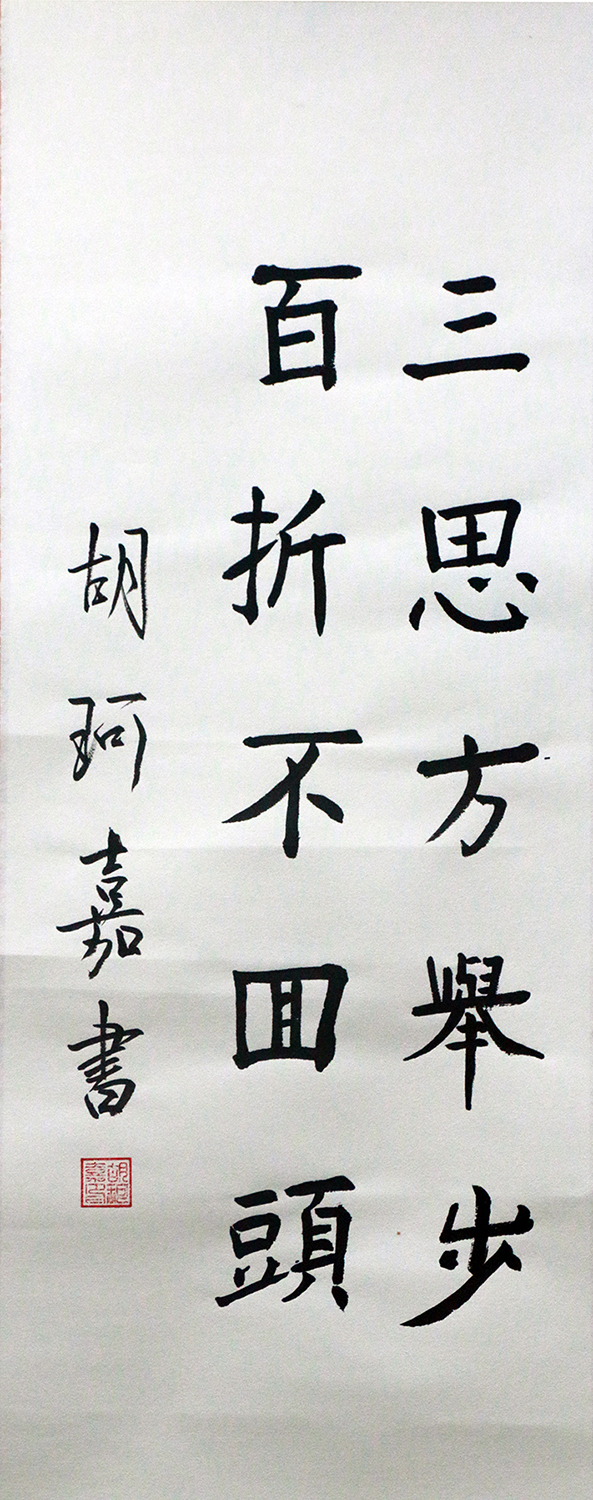 三思方舉步
百折不回頭
胡珂嘉書
胡珂嘉印